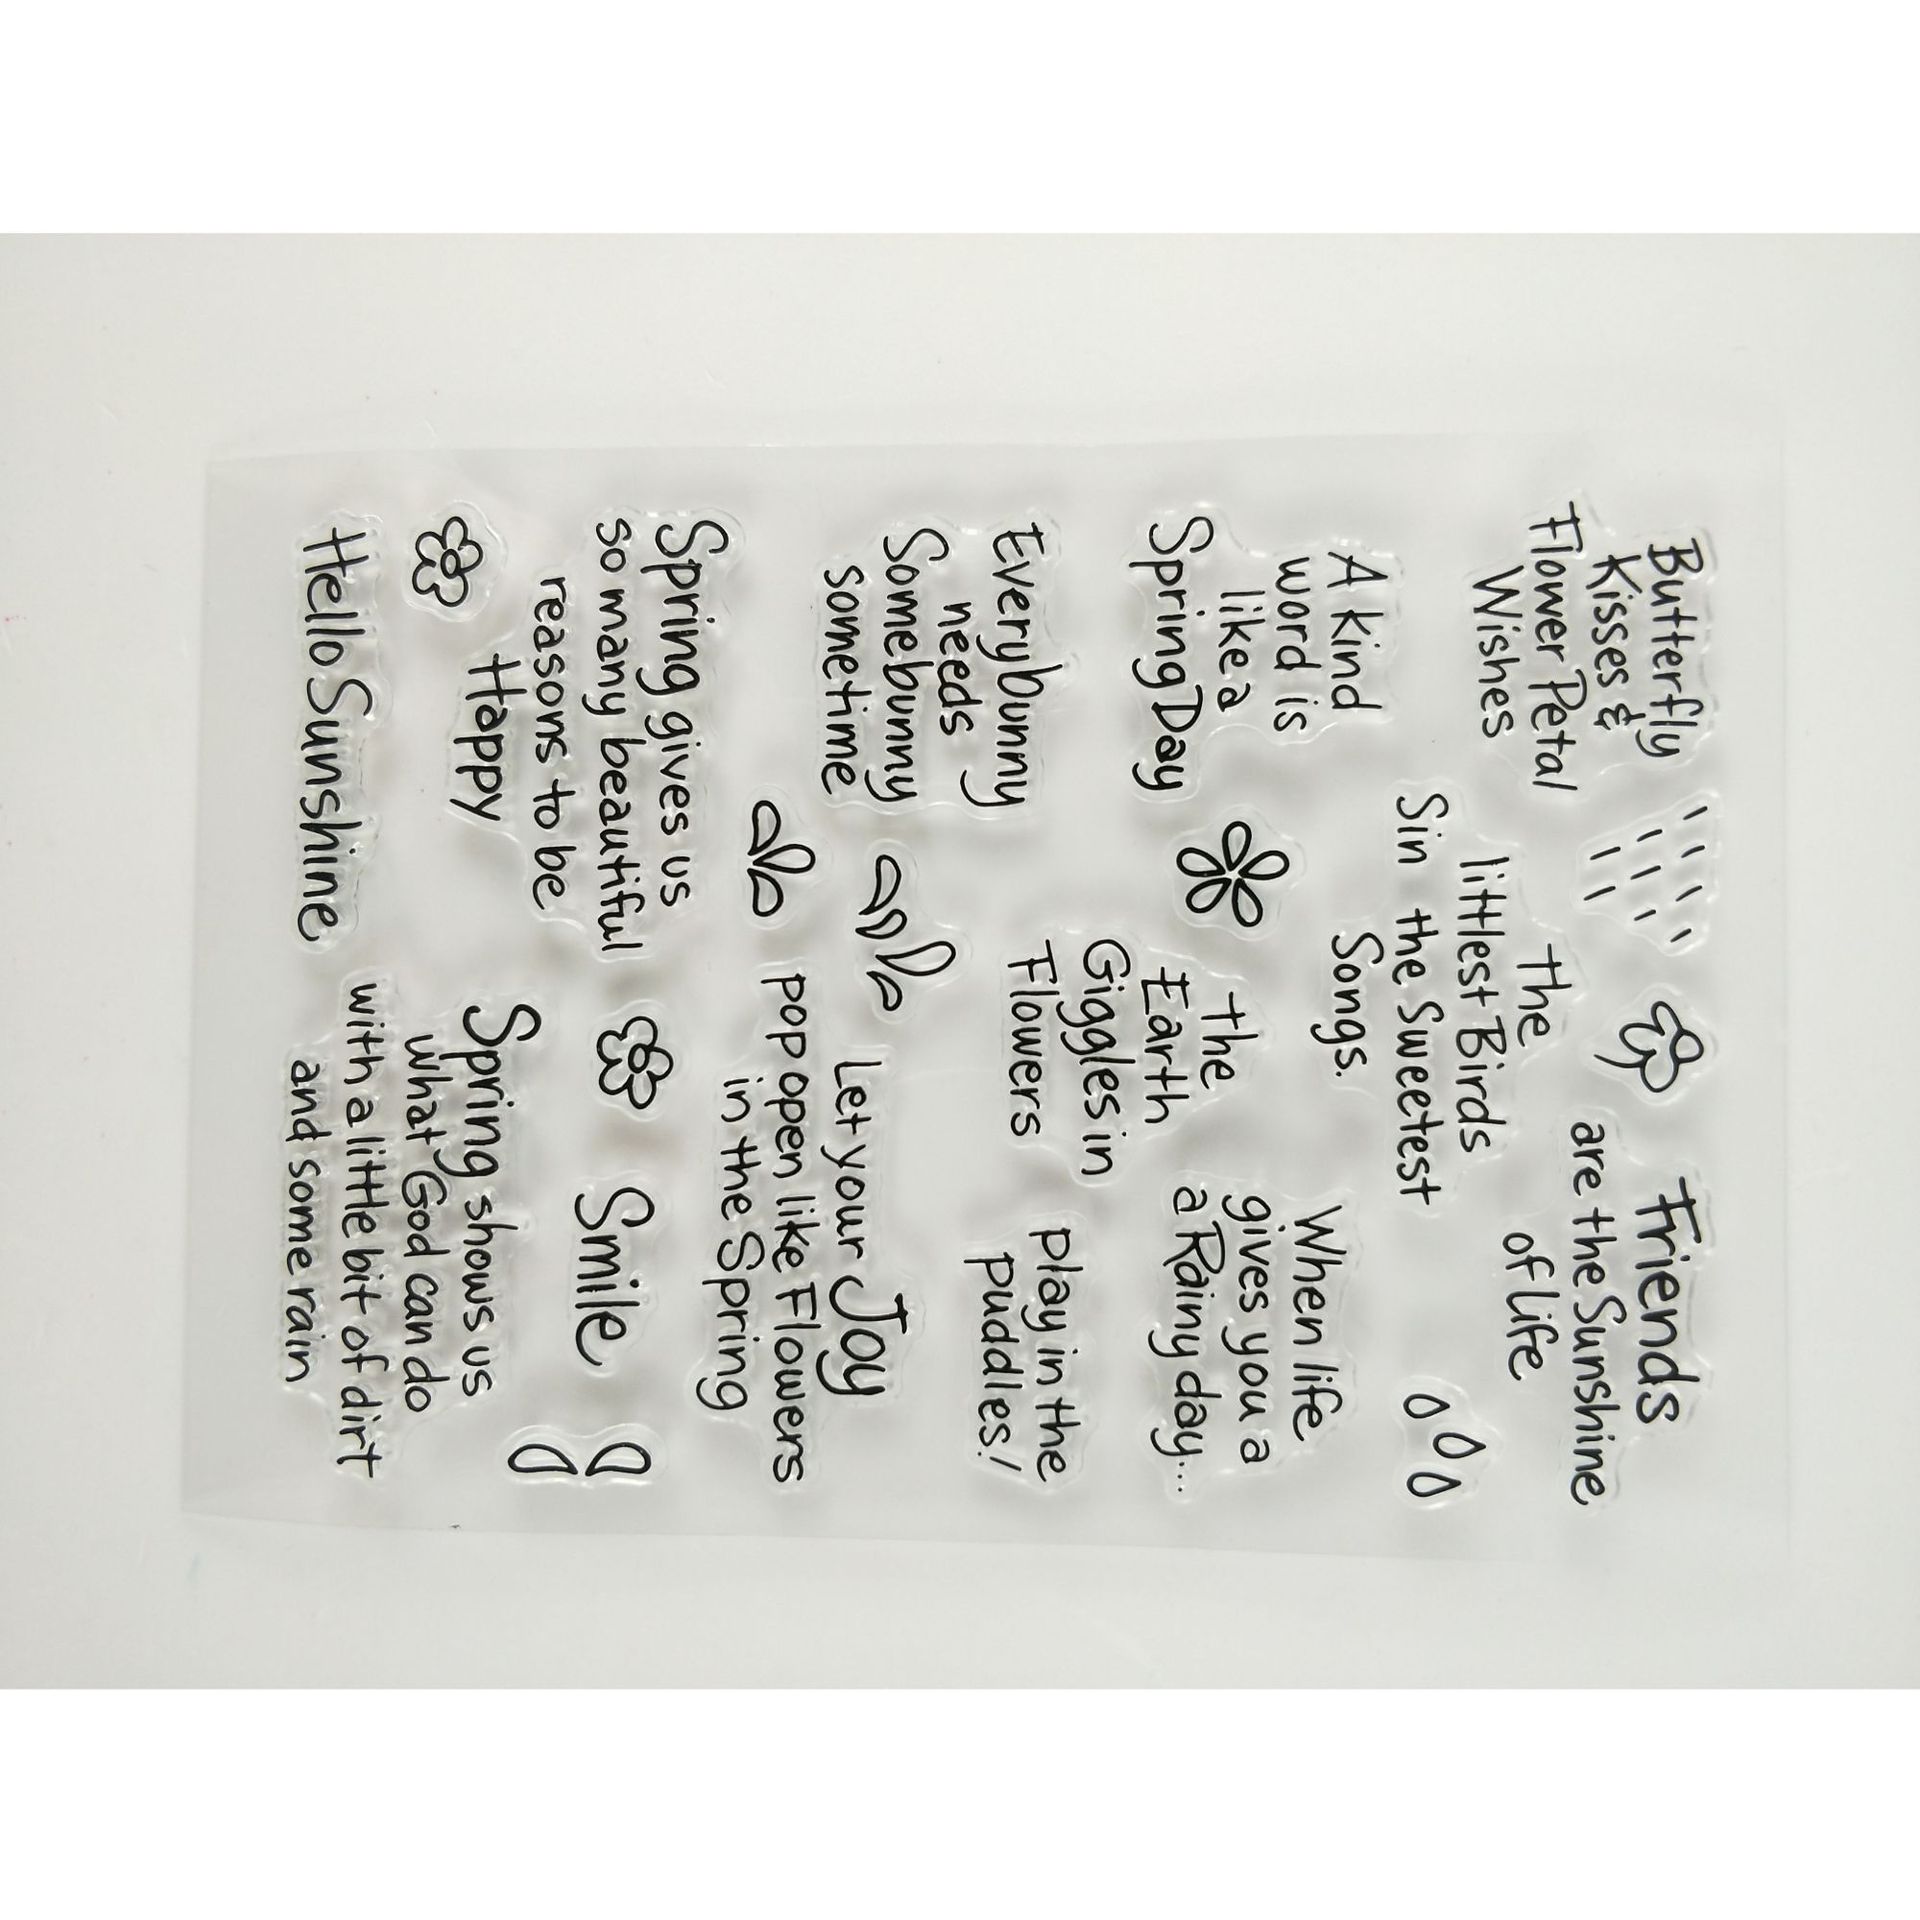 Butterfly
Kisses &
Flower Petal
Wishes
Friends
are the Sunshine
of life
the
littlest Birds
Sin the Sweetest
Songs.
A kind
word is
like a
Spring Day
the
Earth
Giggles in
Flowers
When life
gives you a
a Rainy day...
play in the
puddles!
Everybunny
needs
Somebunny
sometime
Let your Joy
pop open like Flowers
in the Spring
Spring gives us
so many beautiful
reasons to be
Happy
Smile
Spring shows us
what God can do
with a little bit of dirt
and some rain
Hello Sunshine